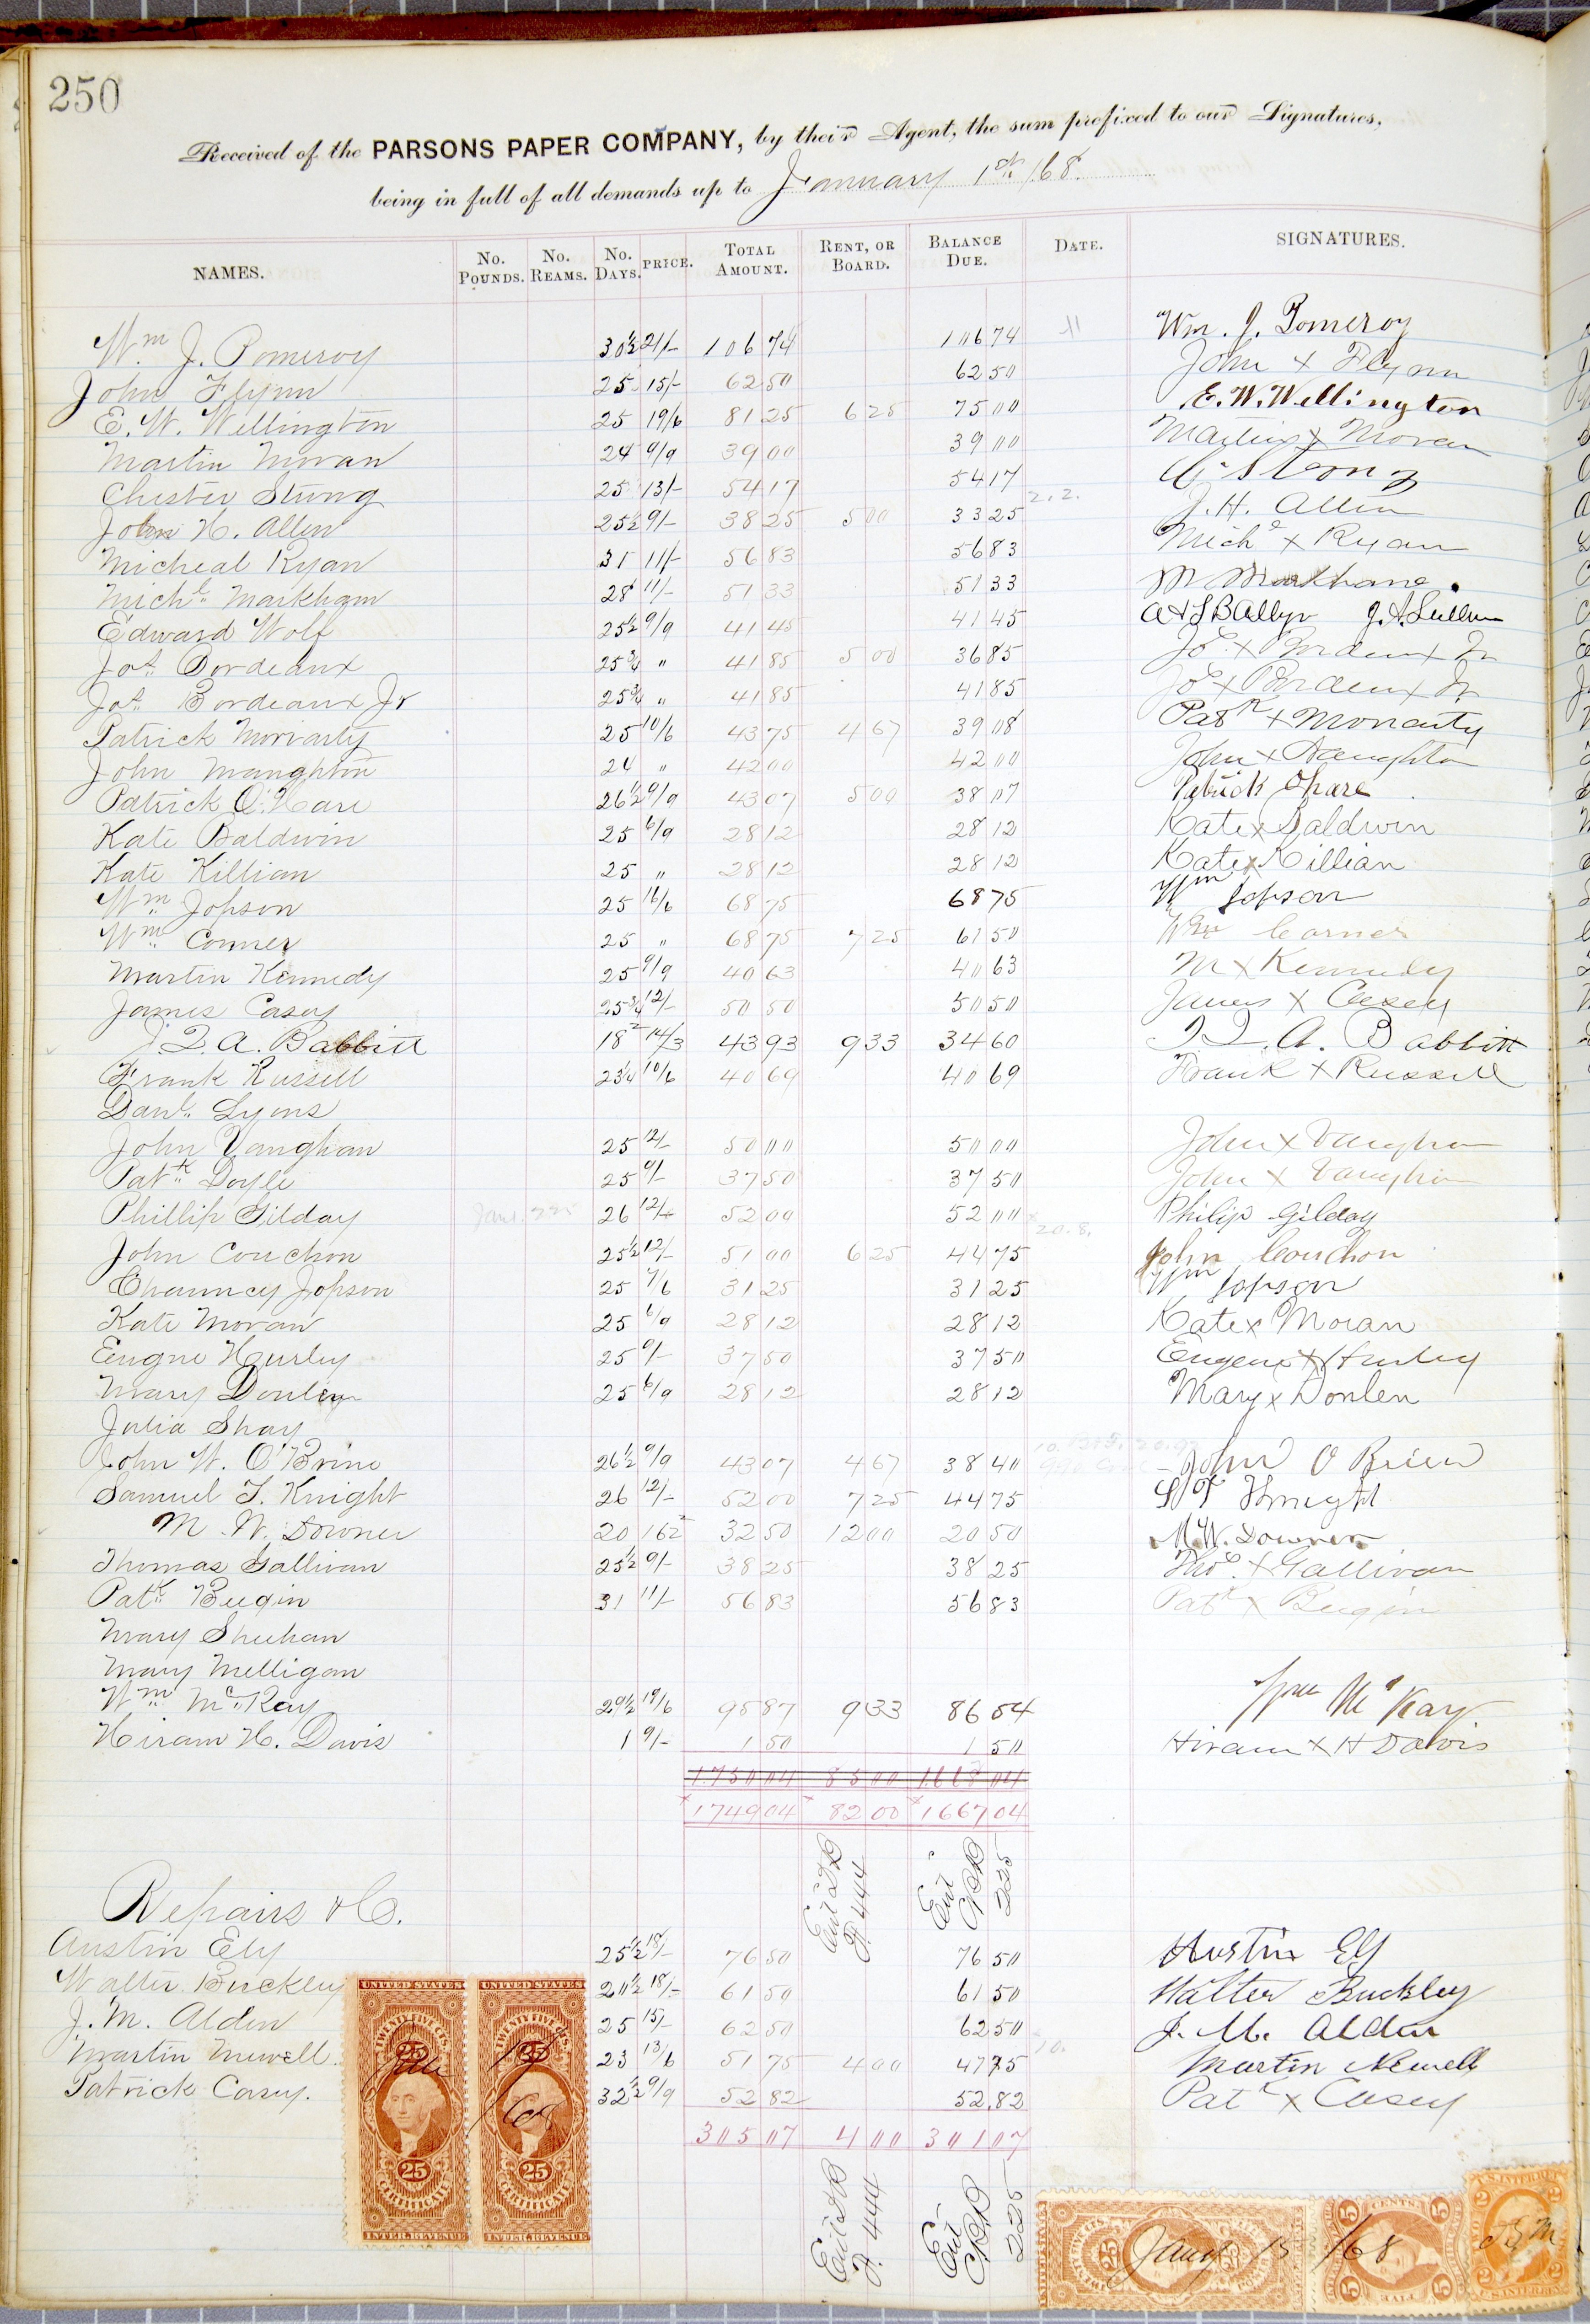 250
Received of the PARSONS PAPER COMPANY, by their Agent, the sum prefixed to our Signatures,
being in full of all demands up to January 1st /68.
NAMES. No. Pounds. No. Reams. No. Days. PRICE. Total Amount. Rent, or Board. Balance Due. Date. SIGNATURES.
Wm J. Pomeroy 30½ 21/- 106 74 106 74 Wm. J. Pomeroy
John Flynn 25 15/- 62 50 62 50 John x Flynn
E. W. Wellington 25 19/6 81 25 6 25 75 00 E. W. Wellington
Martin Moran 24 9/9 39 00 39 00 Martin x Moran
Chester Strong 25 13/- 54 17 54 17 C. Strong
John H. Allen 25½ 9/- 38 25 5 00 33 25 2.2. J. H. Allen
Micheal Ryan 31 11/- 56 83 56 83 Michl x Ryan
Michl Markham 28 11/- 51 33 51 33 M
Edward Wolf 25½ 9/9 41 45 41 45
Jos. Bordeaux 25¾ " 41 85 5 00 36 85 Jos x Bordeaux Jr
Jos. Bordeaux Jr 25¾ " 41 85 41 85 Jos x Bordeaux Jr.
Patrick Moriarty 25 10/6 43 75 4 67 39 08 Patk x Moriarty
John Manghton 24 " 42 00 42 00 John x Naughton
Patrick O'Hare 26½ 9/9 43 07 5 00 38 07 Patrick Ohare
Kate Baldwin 25 6/9 28 12 28 12 Kate x Baldwin
Kate Killian 25 " 28 12 28 12 Kate x Killian
Wm Jopson 25 16/6 68 75 68 75 Wm Jopson
Wm Conner 25 " 68 75 7 25 61 50 Wm Corner
Martin Kennedy 25 9/9 40 63 40 63 M x Kennedy
James Casey 25¾ 12/- 50 50 50 50 James x Casey
J. Q. A. Babbitt 18 14/3 43 93 9 33 34 60 J Q. A. Babbitt
Frank Russell 23¼ 10/6 40 69 40 69 Frank x Russell
Danl. Lyons
John Vaughan 25 12/- 50 00 50 00 John x Vaughan
Patk Doyle 25 9/- 37 50 37 50 John x Vaughan
Phillip Gilday 26 12/- 52 00 52 00 20.8. Philip Gilday
John Couchon 25½ 12/- 51 00 6 25 44 75 John Couchon
Chauncy Jopson 25 7/6 31 25 31 25 Wm Jopson
Kate Moran 25 6/9 28 12 28 12 Kate x Moran
Eugne Hurley 25 9/- 37 50 37 50 Eugene x Hurley
Mary Donlen 25 6/9 28 12 28 12 Mary x Donlen
Julia Shay
John W. O'Brine 26½ 9/9 43 07 4 67 38 40 John O Brien
Samuel T. Knight 26 12/- 52 00 7 25 44 75 S T Knight
M. W. Downer 20 162 32 50 12 00 20 50 M. W. Downer
Thomas Gallivan 25½ 9/- 38 25 38 25 Thos. x Gallivan
Patk Bugin 31 11/- 56 83 56 83 Patk x Bugin
Mary Sheehan
Mary Melligan
Wm McKay 29½ 19/6 95 87 9 33 86 54 Wm McKay
Hiram H. Davis 1 9/- 1 50 1 50 Hiram x H Davis
1750 04 85 00 1668 04
1749 04 82 00 1667 04
Repairs &C.
Austin Ely 25½ 18/- 76 50 76 50 Austin Ely
Walter Buckley 20½ 18/- 61 50 61 50 Walter Buckley
J. M. Alden 25 15/- 62 50 62 50 J. M. Alden
Martin Newell 23 13/6 51 75 4 00 47 75 Martin Newell
Patrick Casey. 32½ 9/9 52 82 52.82 Patk x Casey
305 07 4 00 301 07
444
225
444
225
UNITED STATES
TWENTY FIVE CTS
25
CERTIFICATE
INTER. REVENUE
UNITED STATES
TWENTY FIVE CTS
25
/68
25
CERTIFICATE
INTER. REVENUE
Jany 15 /68
25
5 CENTS 5
2